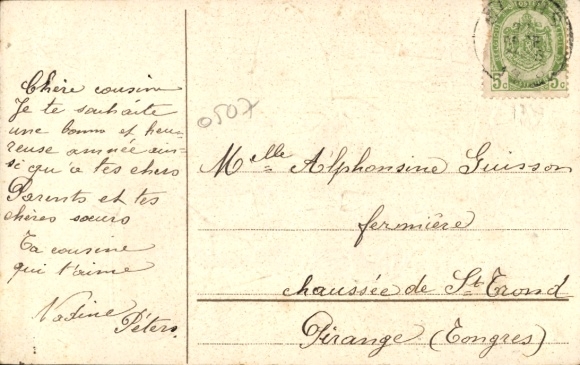 Chère cousine
Je te souhaite
une bonne et heu-
reuse année ain-
si qu'a tes chers
Parents et tes
chères sœurs
Ta cousine
qui t'aime
Nadine
Péters
0507
5c 5c
Melle Alphonsine Guisson
fermière
chaussée de St Trond
Pirange (Tongres)